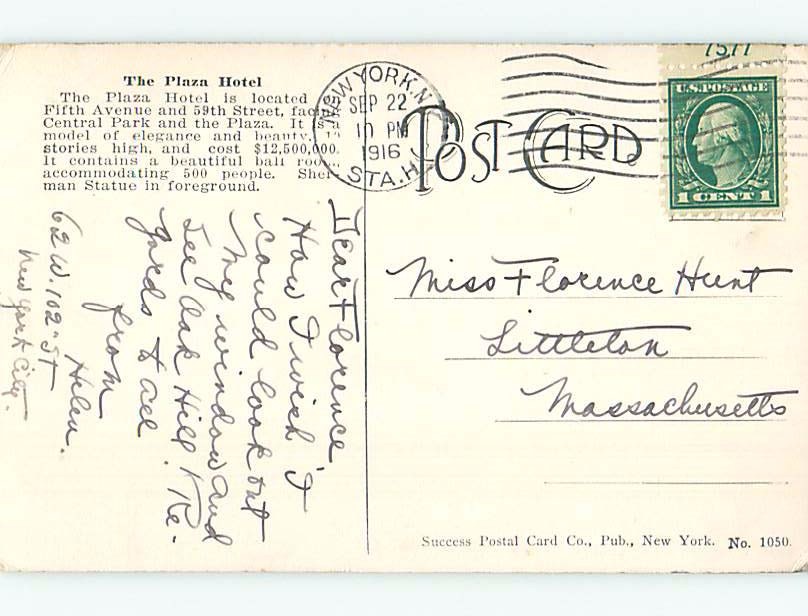 1577
The Plaza Hotel
The Plaza Hotel is located
Fifth Avenue and 59th Street, facing
Central Park and the Plaza. It is a
model of elegance and beauty,
stories high, and cost $12,500,000.
It contains a beautiful ball room,
accommodating 500 people. Sher-
man Statue in foreground.
NEW YORK, N.
SEP 22
10 PM
1916
STA. H
POST CARD
U.S. POSTAGE
1 CENT 1
Dear Florence
How I wish I
could look out
my window and
see Oak Hill. Re-
gards to all
from
Helen.
62 W. 102" ST
New York City.
Miss Florence Hunt
Littleton
Massachusetts
Success Postal Card Co., Pub., New York. No. 1050.